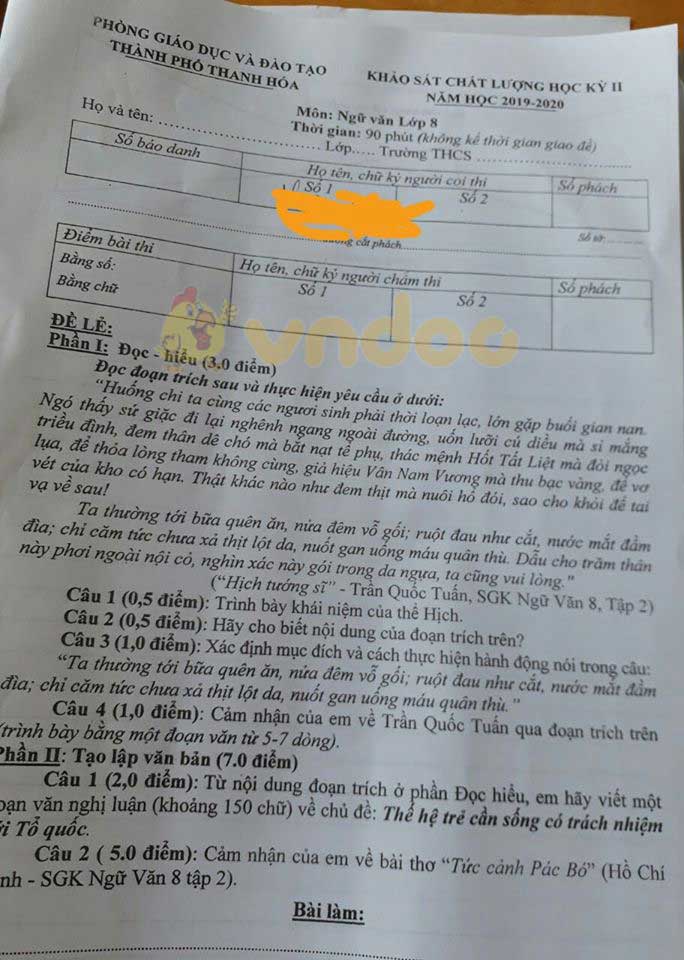 PHÒNG GIÁO DỤC VÀ ĐÀO TẠO
THÀNH PHỐ THANH HÓA
KHẢO SÁT CHẤT LƯỢNG HỌC KỲ II
NĂM HỌC 2019-2020
Môn: Ngữ văn Lớp 8
Thời gian: 90 phút (không kể thời gian giao đề)
Họ và tên: .................... Lớp..... Trường THCS ....................
Số báo danh
Họ tên, chữ ký người coi thi
Số phách
Số 1
Số 2
cắt phách
Số tờ:..........
Điểm bài thi
Họ tên, chữ ký người chấm thi
Số phách
Bằng số:
Số 1
Số 2
Bằng chữ
vndoc
ĐỀ LẺ:
Phần I: Đọc - hiểu (3.0 điểm)
Đọc đoạn trích sau và thực hiện yêu cầu ở dưới:
"Huống chi ta cùng các ngươi sinh phải thời loạn lạc, lớn gặp buổi gian nan.
Ngó thấy sứ giặc đi lại nghênh ngang ngoài đường, uốn lưỡi cú diều mà sỉ mắng
triều đình, đem thân dê chó mà bắt nạt tể phụ, thác mệnh Hốt Tất Liệt mà đòi ngọc
lụa, để thỏa lòng tham không cùng, giả hiệu Vân Nam Vương mà thu bạc vàng, để vơ
vét của kho có hạn. Thật khác nào như đem thịt mà nuôi hổ đói, sao cho khỏi để tai
vạ về sau!
Ta thường tới bữa quên ăn, nửa đêm vỗ gối; ruột đau như cắt, nước mắt đầm
đìa; chỉ căm tức chưa xả thịt lột da, nuốt gan uống máu quân thù. Dẫu cho trăm thân
này phơi ngoài nội cỏ, nghìn xác này gói trong da ngựa, ta cũng vui lòng."
("Hịch tướng sĩ" - Trần Quốc Tuấn, SGK Ngữ Văn 8, Tập 2)
Câu 1 (0,5 điểm): Trình bày khái niệm của thể Hịch.
Câu 2 (0,5 điểm): Hãy cho biết nội dung của đoạn trích trên?
Câu 3 (1,0 điểm): Xác định mục đích và cách thực hiện hành động nói trong câu:
"Ta thường tới bữa quên ăn, nửa đêm vỗ gối; ruột đau như cắt, nước mắt đầm
đìa; chỉ căm tức chưa xả thịt lột da, nuốt gan uống máu quân thù."
Câu 4 (1,0 điểm): Cảm nhận của em về Trần Quốc Tuấn qua đoạn trích trên
(trình bày bằng một đoạn văn từ 5-7 dòng).
Phần II: Tạo lập văn bản (7.0 điểm)
Câu 1 (2,0 điểm): Từ nội dung đoạn trích ở phần Đọc hiểu, em hãy viết một
oạn văn nghị luận (khoảng 150 chữ) về chủ đề: Thế hệ trẻ cần sống có trách nhiệm
ới Tổ quốc.
Câu 2 ( 5.0 điểm): Cảm nhận của em về bài thơ "Tức cảnh Pác Bó" (Hồ Chí
nh - SGK Ngữ Văn 8 tập 2).
Bài làm: